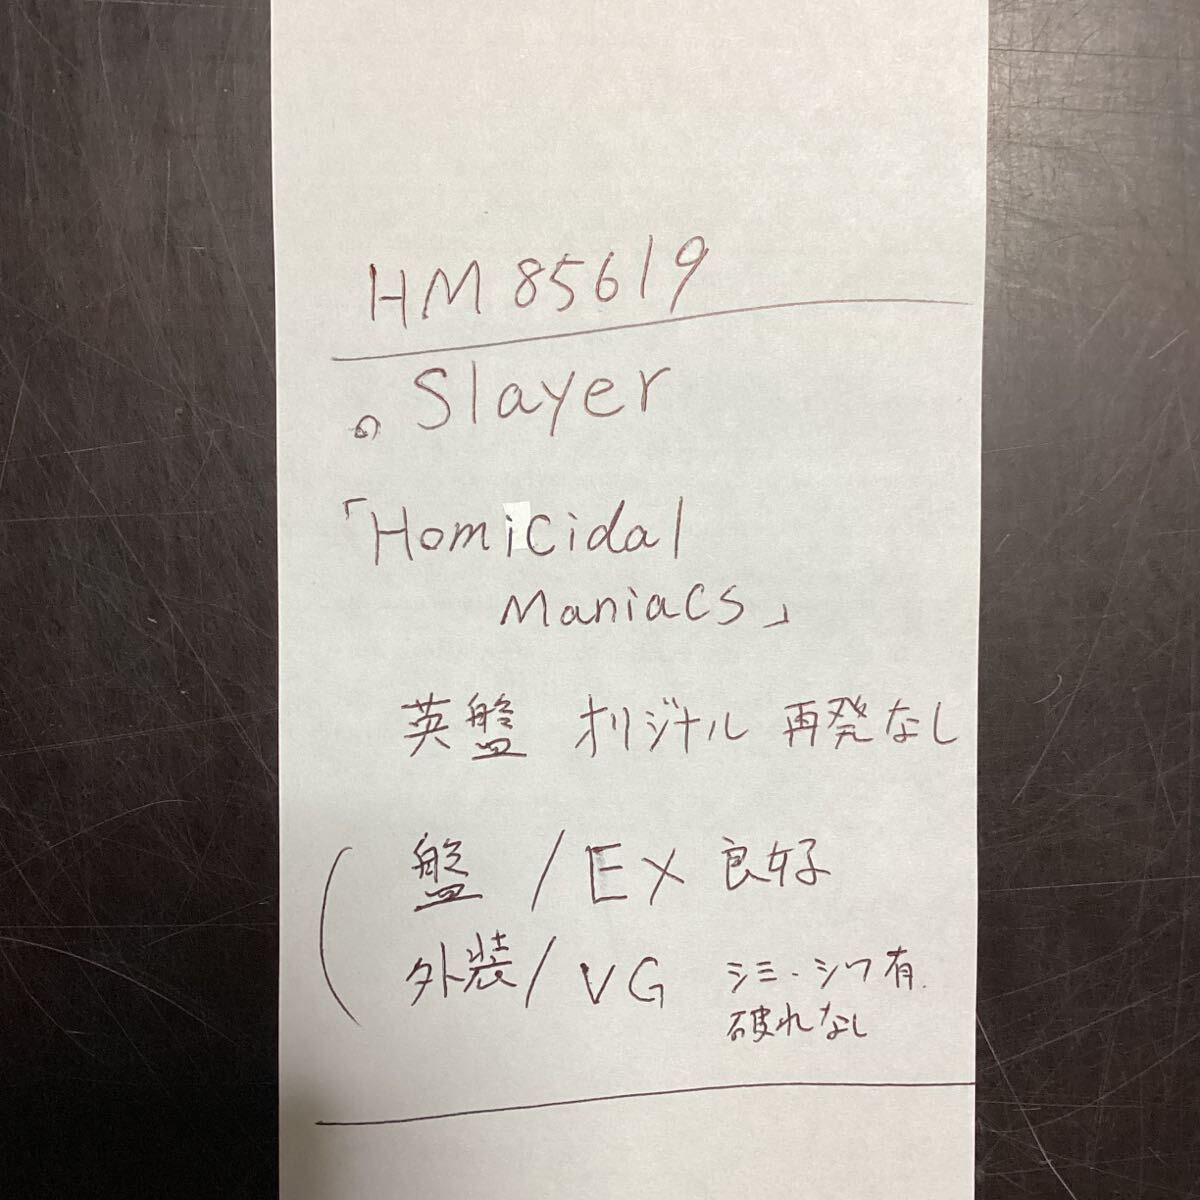 HM 85619
。Slayer
「Homicidal
Maniacs」
英盤 オリジナル 再発なし
盤 / EX 良好
外装 / VG シミ・シワ有.
破れなし